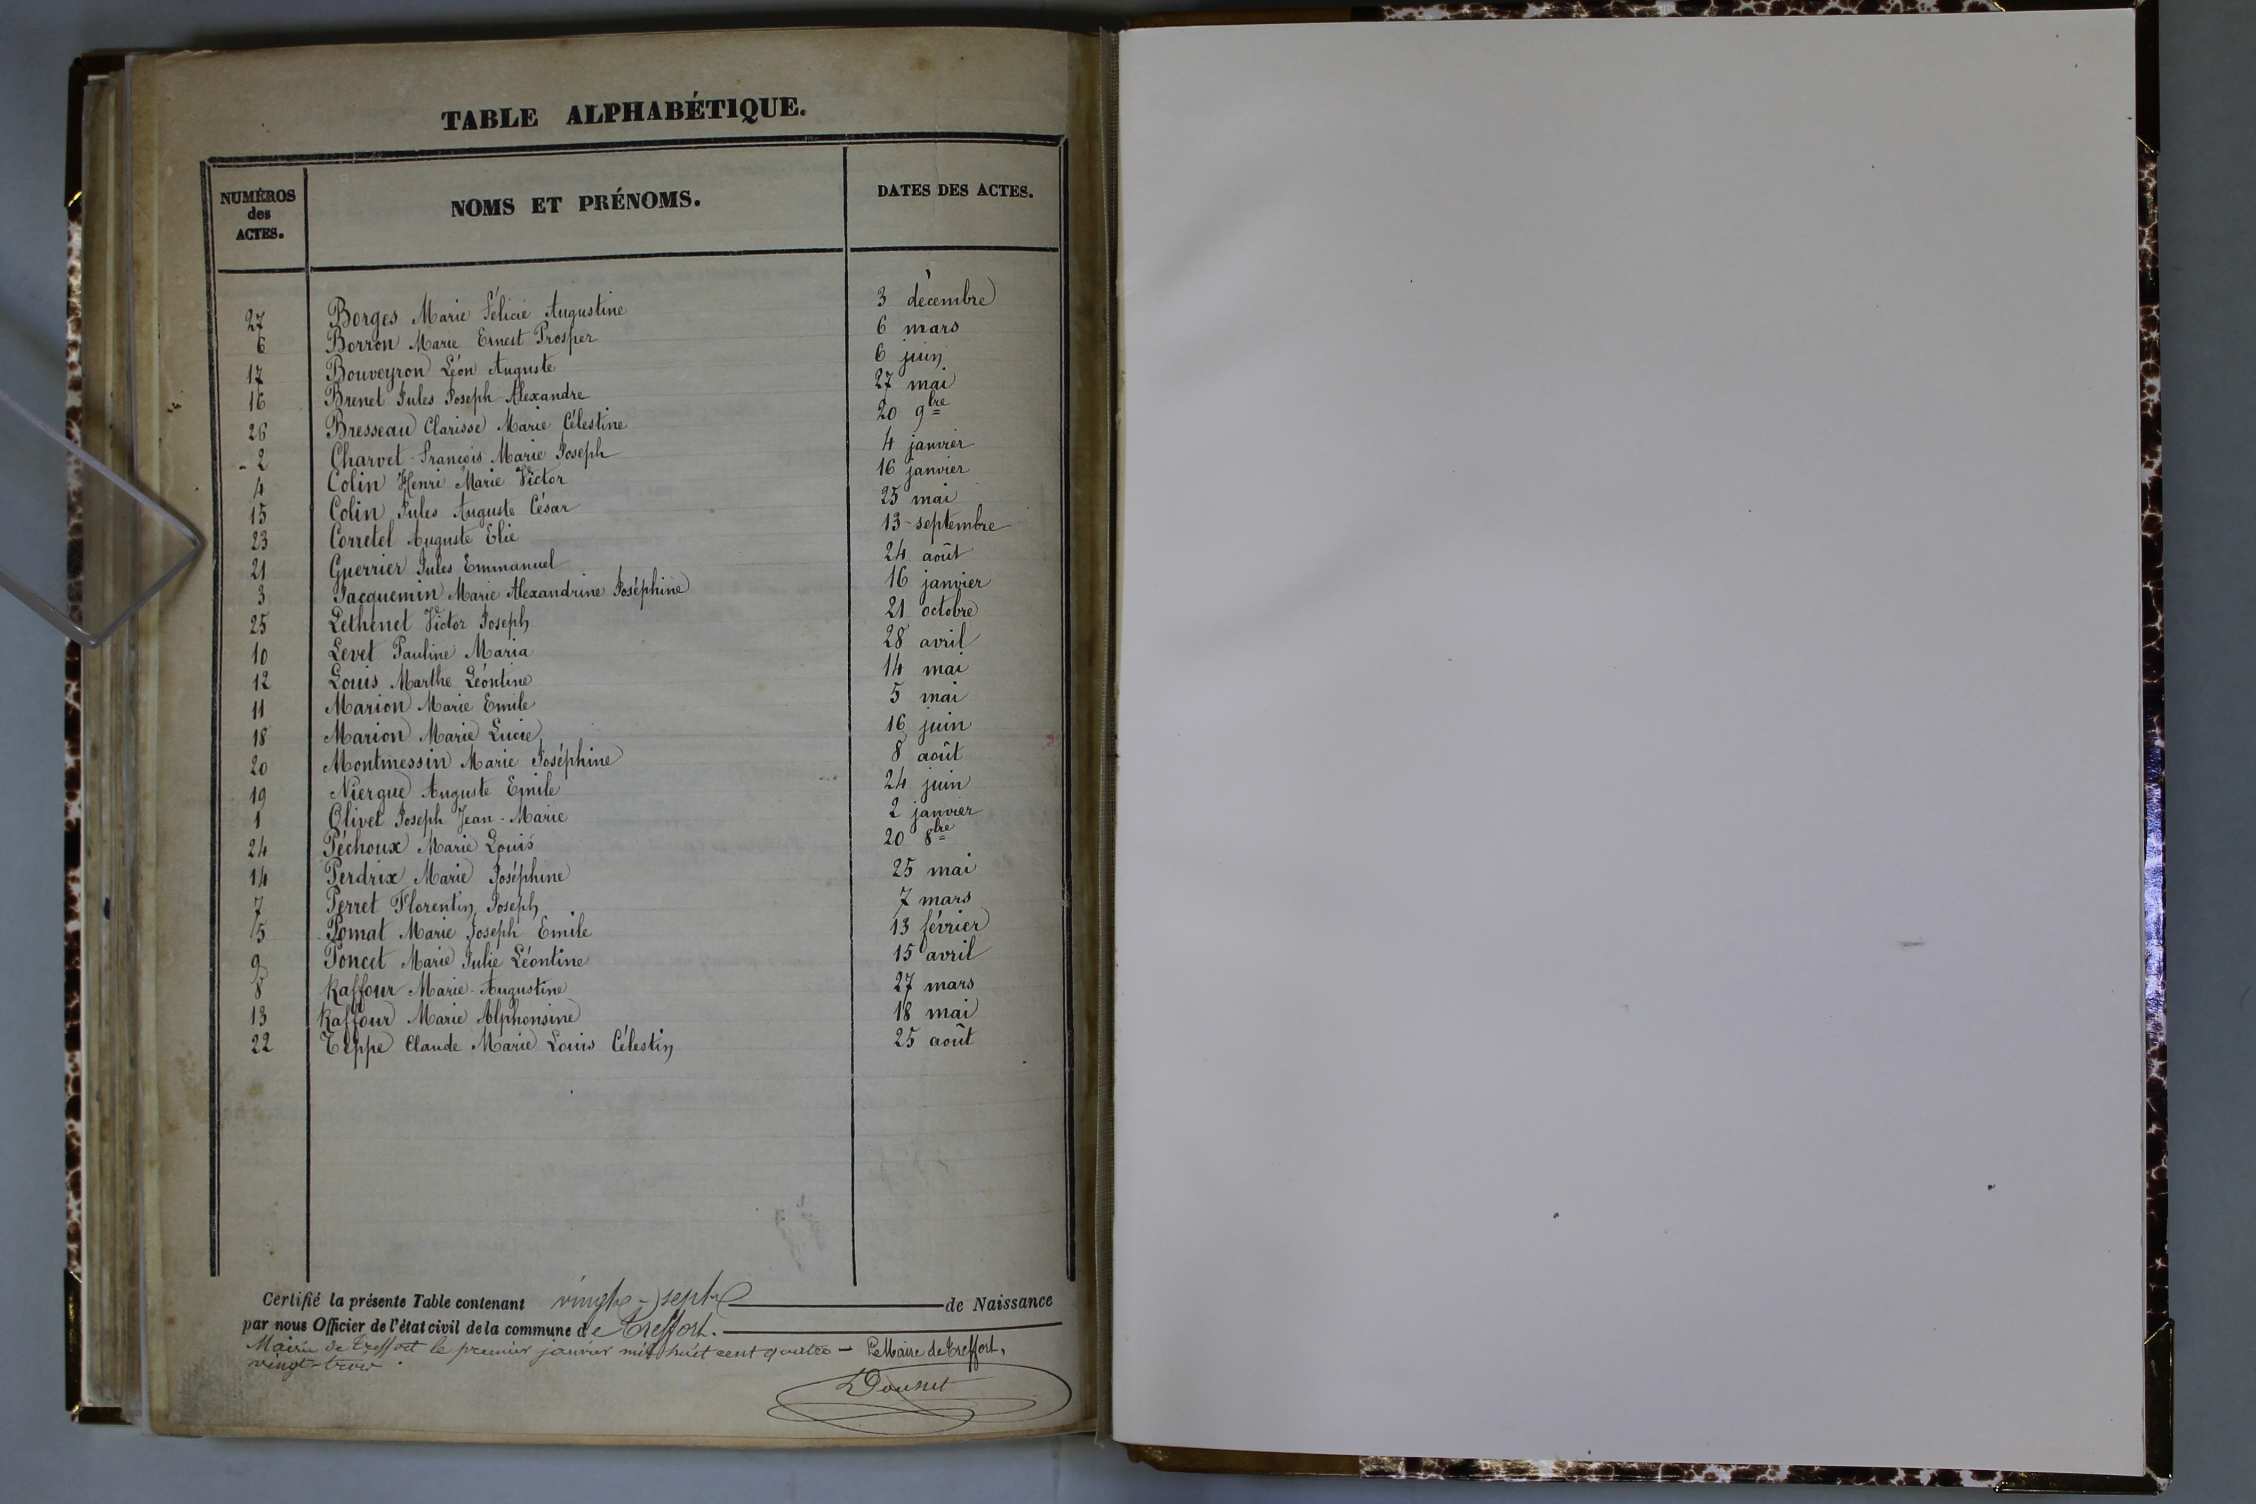 TABLE ALPHABÉTIQUE.
NUMÉROS des ACTES. NOMS ET PRÉNOMS. DATES DES ACTES.
27 Borges Marie Félicie Augustine 3 décembre
6 Borron Marie Ernest Prosper 6 mars
17 Bouveyron Léon Auguste 6 juin
16 Brenet Jules Joseph Alexandre 27 mai
26 Bresseau Clarisse Marie Célestine 20 9bre
2 Charvet François Marie Joseph 4 janvier
4 Colin Henri Marie Victor 16 janvier
15 Colin Jules Auguste César 25 mai
23 Corretel Auguste Elie 13 septembre
21 Guerrier Jules Emmanuel 24 août
3 Jacquemin Marie Alexandrine Joséphine 16 janvier
25 Lethenet Victor Joseph 21 octobre
10 Levet Pauline Maria 28 avril
12 Louis Marthe Léontine 14 mai
11 Marion Marie Emile 5 mai
18 Marion Marie Lucie 16 juin
20 Montmessin Marie Joséphine 8 août
19 Niergue Auguste Emile 24 juin
1 Olivet Joseph Jean-Marie 2 janvier
24 Péchoux Marie Louis 20 8bre
14 Perdrix Marie Joséphine 25 mai
7 Perret Florentin Joseph 7 mars
5 Pomat Marie Joseph Emile 13 février
9 Poncet Marie Julie Léontine 15 avril
8 Raffour Marie-Augustine 27 mars
13 Raffour Marie Alphonsine 18 mai
22 Teppe Claude Marie Louis Célestin 25 août
Certifié la présente Table contenant vingt-sept de Naissance
par nous Officier de l'état civil de la commune de Treffort.
Mairie de Treffort le premier janvier mil huit cent quatre- Le Maire de Treffort,
vingt-trois.